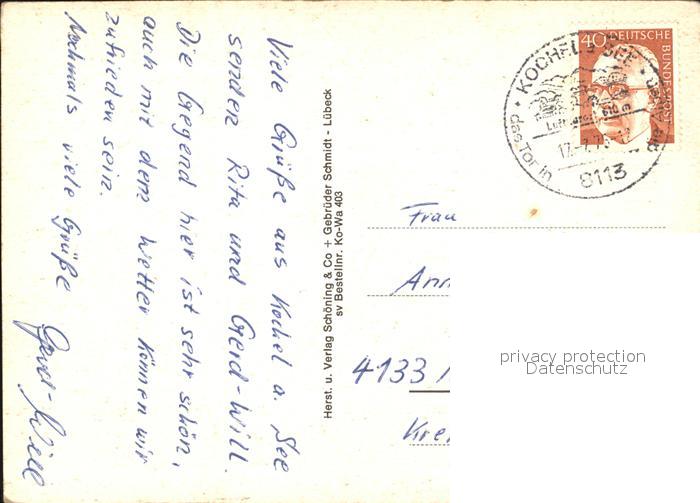 Viele Grüße aus Kochel a. See
senden Rita und Gerd-Will.
Die Gegend hier ist sehr schön,
auch mit dem Wetter können wir
zufrieden sein.
Nochmals viele Grüße
Gerd-Will
Herst. u. Verlag Schöning & Co + Gebrüder Schmidt - Lübeck
sv Bestellnr. Ko-Wa 403
40 DEUTSCHE
BUNDESPOST
KOCHEL a. SEE
das Tor in
8113
Frau
4133
privacy protection
Datenschutz